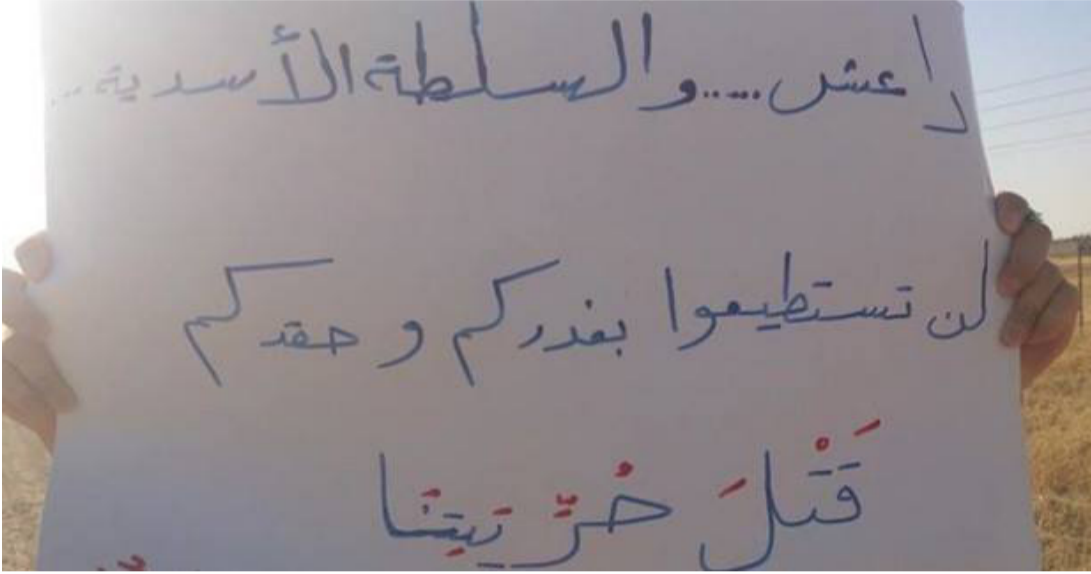 داعش.....والسلطة الأسدية...
لن تستطيعوا بغدركم و حقدكم
قَتْلَ حُرِّيَتِنا